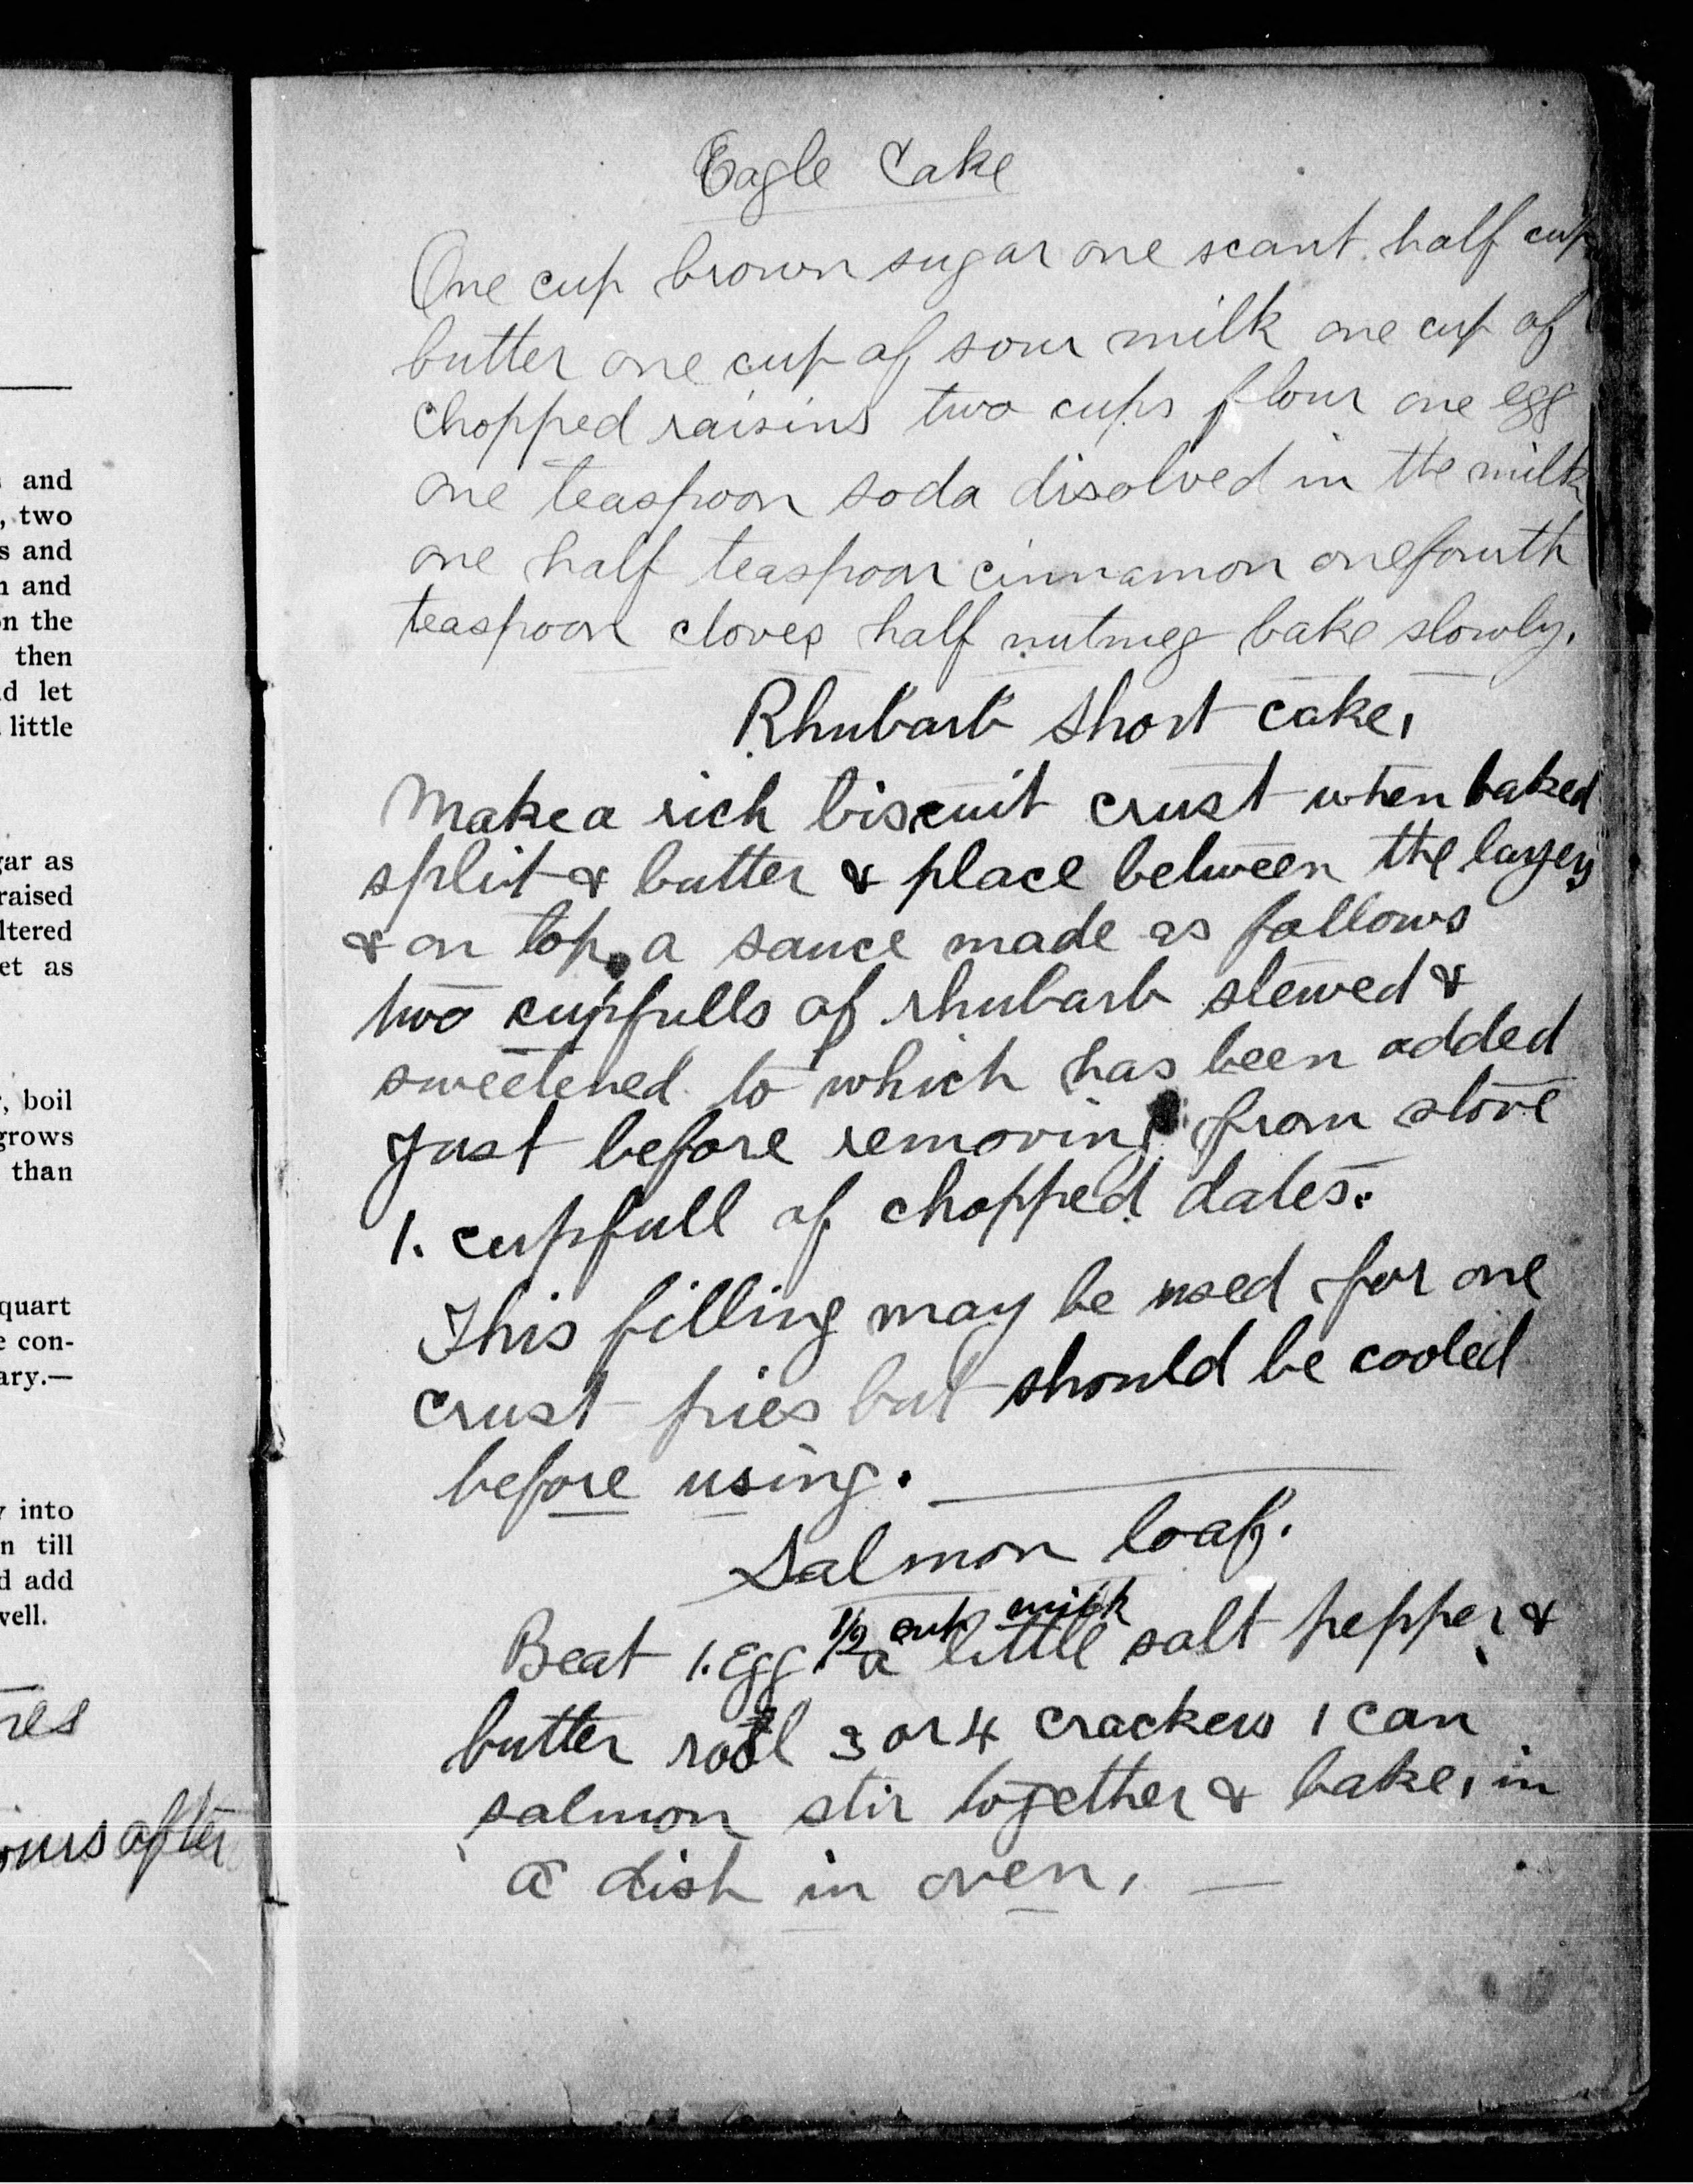 s and
, two
s and
n and
on the
then
d let
little
gar as
raised
ltered
et as
, boil
grows
than
quart
e con-
ary.—
y into
n till
d add
well.
res
ours after
Eagle Cake
One cup brown sugar one scant half cup
butter one cup of sour milk one cup of
chopped raisins two cups flour one egg
one teaspoon soda disolved in the milk
one half teaspoon cinnamon onefourth
teaspoon cloves half nutmeg bake slowly.
Rhubarb Short cake,
Make a rich biscuit crust when baked
split & butter & place between the layers
& on top, a sauce made as follows
two cupfulls of rhubarb stewed &
sweetened to which has been added
Just before removing from stove
1. cupfull of chopped dates.
This filling may be used for one
crust pies but should be cooled
before using.
Salmon loaf.
1/2 cup milk
Beat 1. Egg a little salt pepper &
butter roll 3 or 4 crackers 1 can
salmon stir together & bake, in
a dish in oven, —